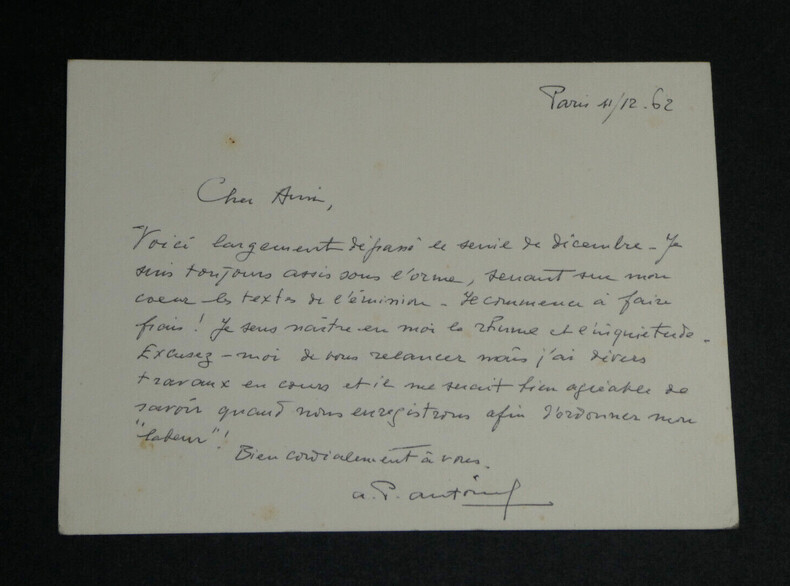 Paris 11/12.62
Cher Ami,
Voici largement dépassé le seuil de décembre - Je
suis toujours assis sous l'orme, serrant sur mon
coeur les textes de l'émission - Je commence à faire
froid ! Je sens naître en moi le rhume et l'inquiétude.
Excusez-moi de vous relancer mais j'ai divers
travaux en cours et il me serait bien agréable de
savoir quand nous enregistrons afin d'ordonner mon
"labeur" !
Bien cordialement à vous.
a.P. antoine